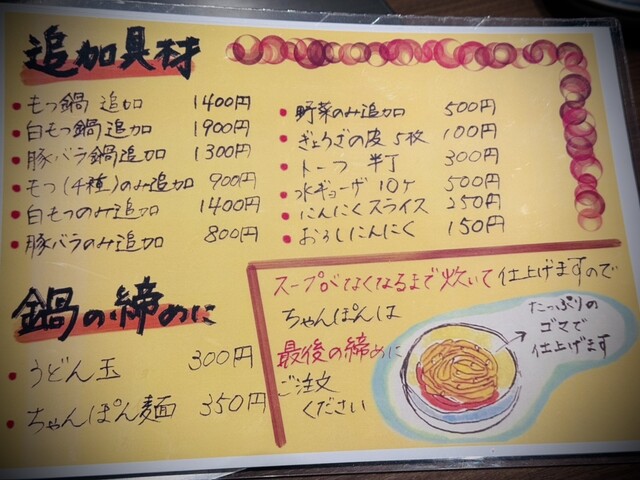 追加具材
・もつ鍋 追加 1400円
・白もつ鍋追加 1900円
・豚バラ鍋追加 1300円
・モツ(4種)のみ追加 900円
・白もつのみ追加 1400円
・豚バラのみ追加 800円
・野菜のみ追加 500円
・ぎょうざの皮 5枚 100円
・トーフ 半丁 300円
・水ギョーザ 10ケ 500円
・にんにくスライス 250円
・おろしにんにく 150円
鍋の締めに
・うどん玉 300円
・ちゃんぽん麺 350円
スープがなくなるまで炊いて仕上げますので
ちゃんぽんは
最後の締めに
ご注文
ください
たっぷりの
ゴマで
仕上げます